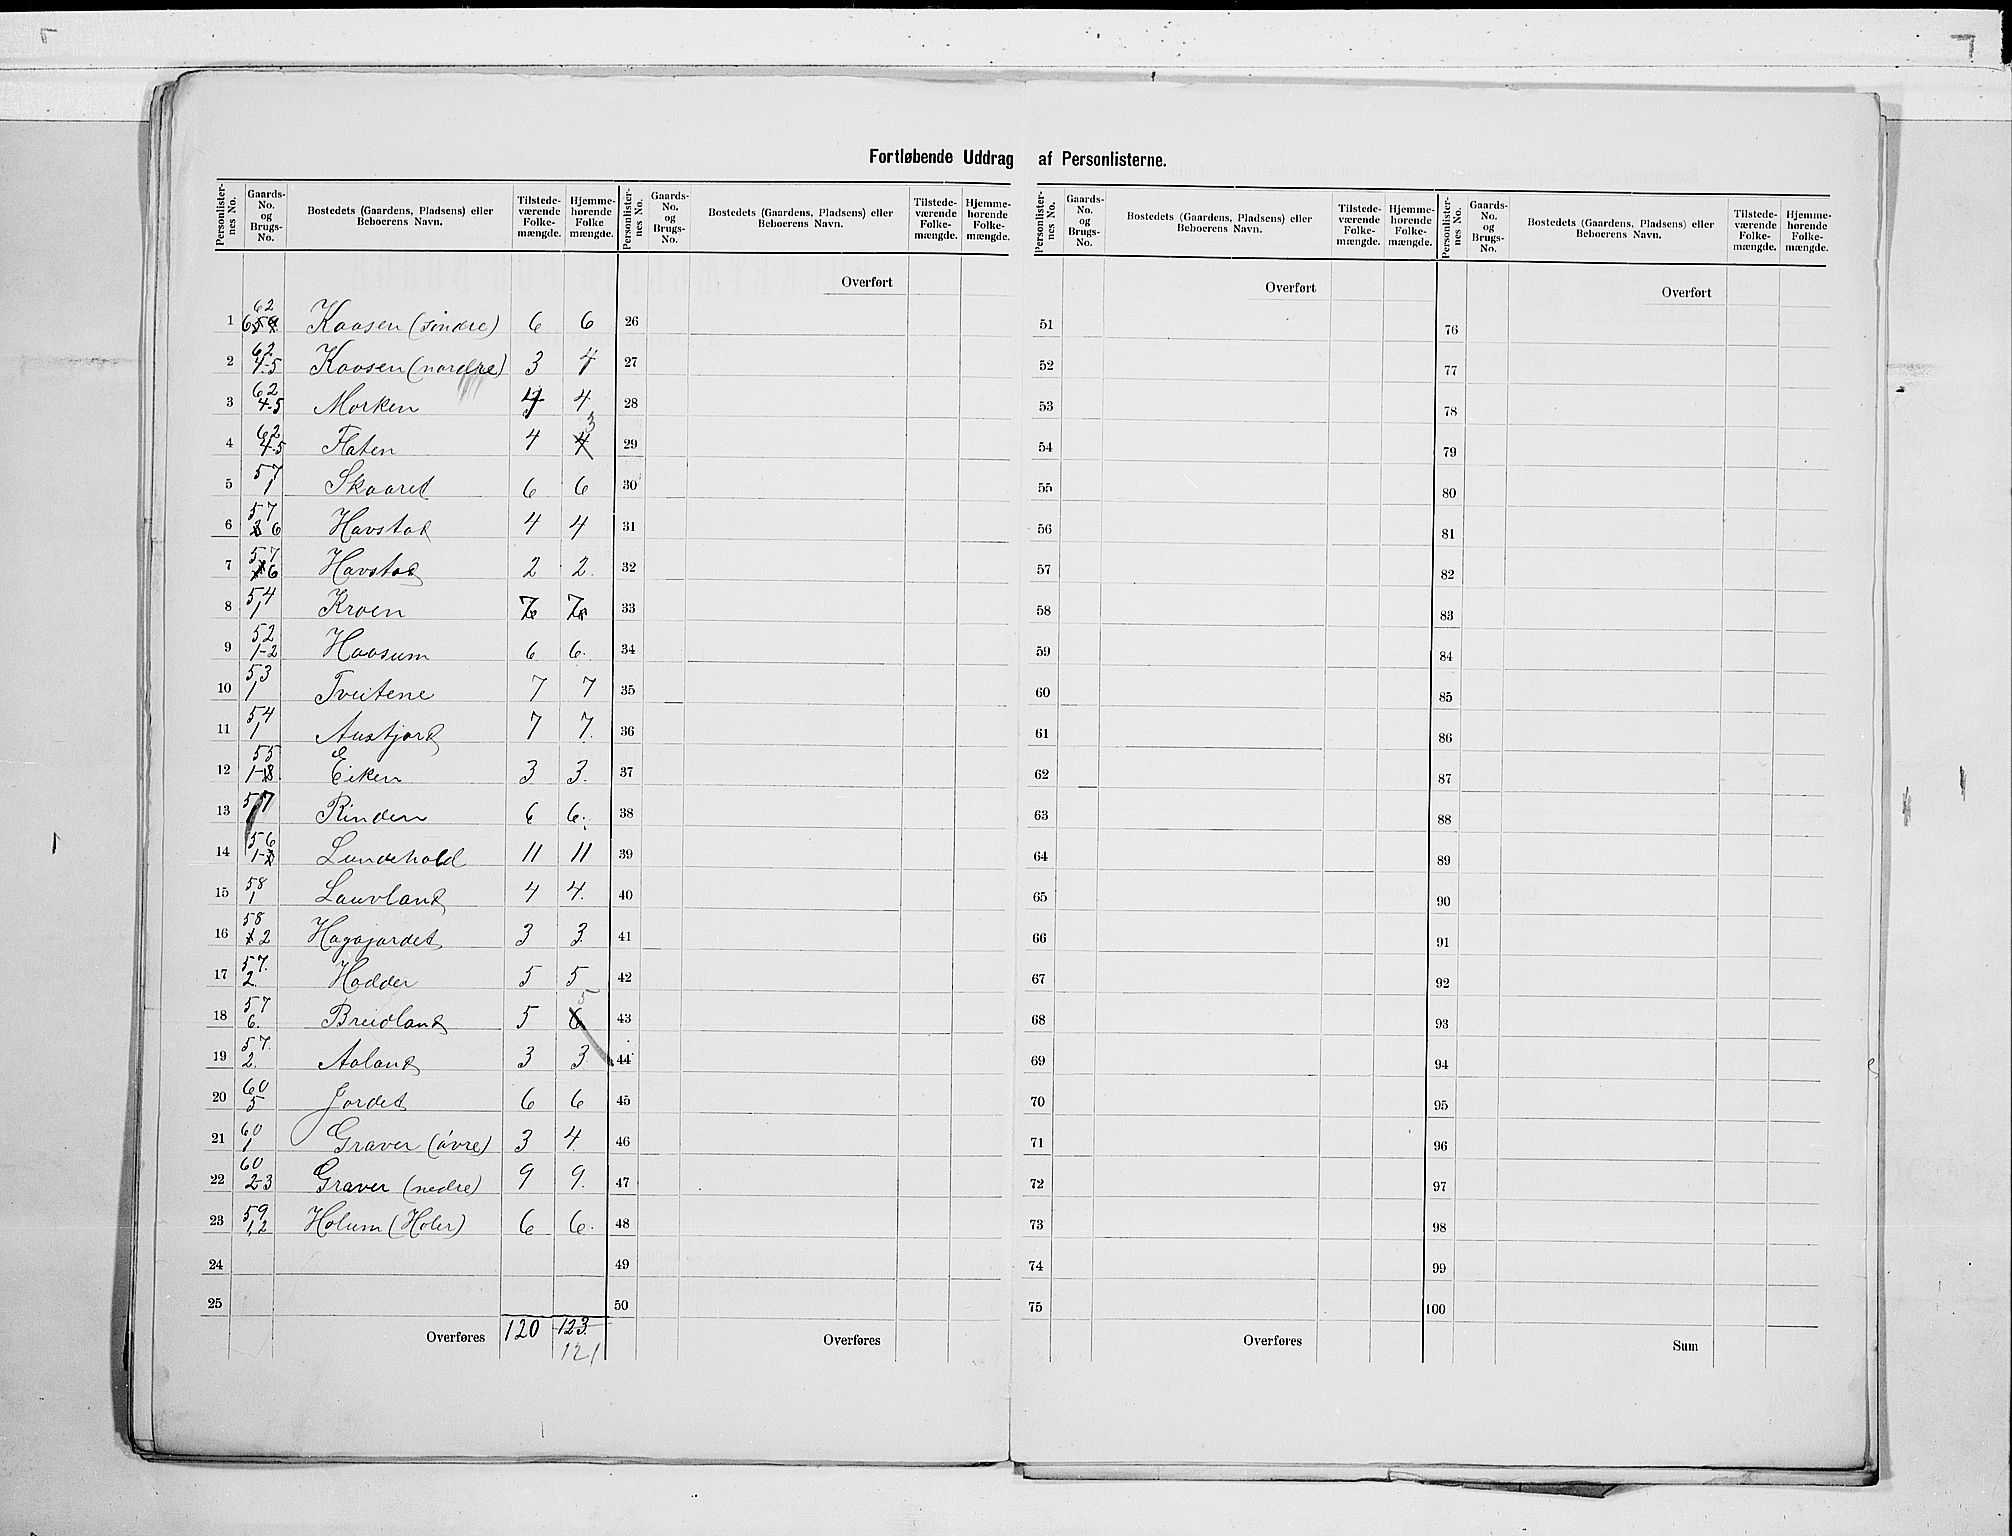 Fortløbende Uddrag af Personlisterne.
Personlister-nes No. Gaards-No. og Brugs-No. Bostedets (Gaardens, Pladsens) eller Beboerens Navn. Tilstede-værende Folke-mængde. Hjemme-hørende Folke-mængde.
1 62 Kaasen (söndre) 6 6
2 62 4-5 Kaasen (nordre) 3 4
3 62 4-5 Morken 4 4
4 62 4-5 Flaten 4 4 3
5 57 1 Skaaret 6 6
6 57 6 Havstad 4 4
7 57 6 Havstad 2 2.
8 54 1 Kroen 7 7
9 52 1-2 Haasum 6 6.
10 53 1 Tveitene 7 7
11 54 1 Austjord 7 7.
12 55 1-8. Eiken 3 3.
13 57 Rinden 6 6.
14 56 1- Lundehold 11 11
15 58 1 Lauvland 4 4.
16 58 2 Hagajordet 3 3.
17 57. 2. Hadder 5 5
18 57 6. Breidland 5 6 5
19 57. 2. Aaland 3 3
20 60 5 Jordet 6 6
21 60 1 Graver (övre) 3 4
22 60 2-3 Graver (nedre) 9 9.
23 59 1,2 Holum (Holer) 6 6.
24
25
Overføres 120 123 121
Personlister-nes No. Gaards-No. og Brugs-No. Bostedets (Gaardens, Pladsens) eller Beboerens Navn. Tilstede-værende Folke-mængde. Hjemme-hørende Folke-mængde.
Overført
26
27
28
29
30
31
32
33
34
35
36
37
38
39
40
41
42
43
44
45
46
47
48
49
50
Overføres
Personlister-nes No. Gaards-No. og Brugs-No. Bostedets (Gaardens, Pladsens) eller Beboerens Navn. Tilstede-værende Folke-mængde. Hjemme-hørende Folke-mængde.
Overført
51
52
53
54
55
56
57
58
59
60
61
62
63
64
65
66
67
68
69
70
71
72
73
74
75
Overføres
Personlister-nes No. Gaards-No. og Brugs-No. Bostedets (Gaardens, Pladsens) eller Beboerens Navn. Tilstede-værende Folke-mængde. Hjemme-hørende Folke-mængde.
Overført
76
77
78
79
80
81
82
83
84
85
86
87
88
89
90
91
92
93
94
95
96
97
98
99
100
Sum